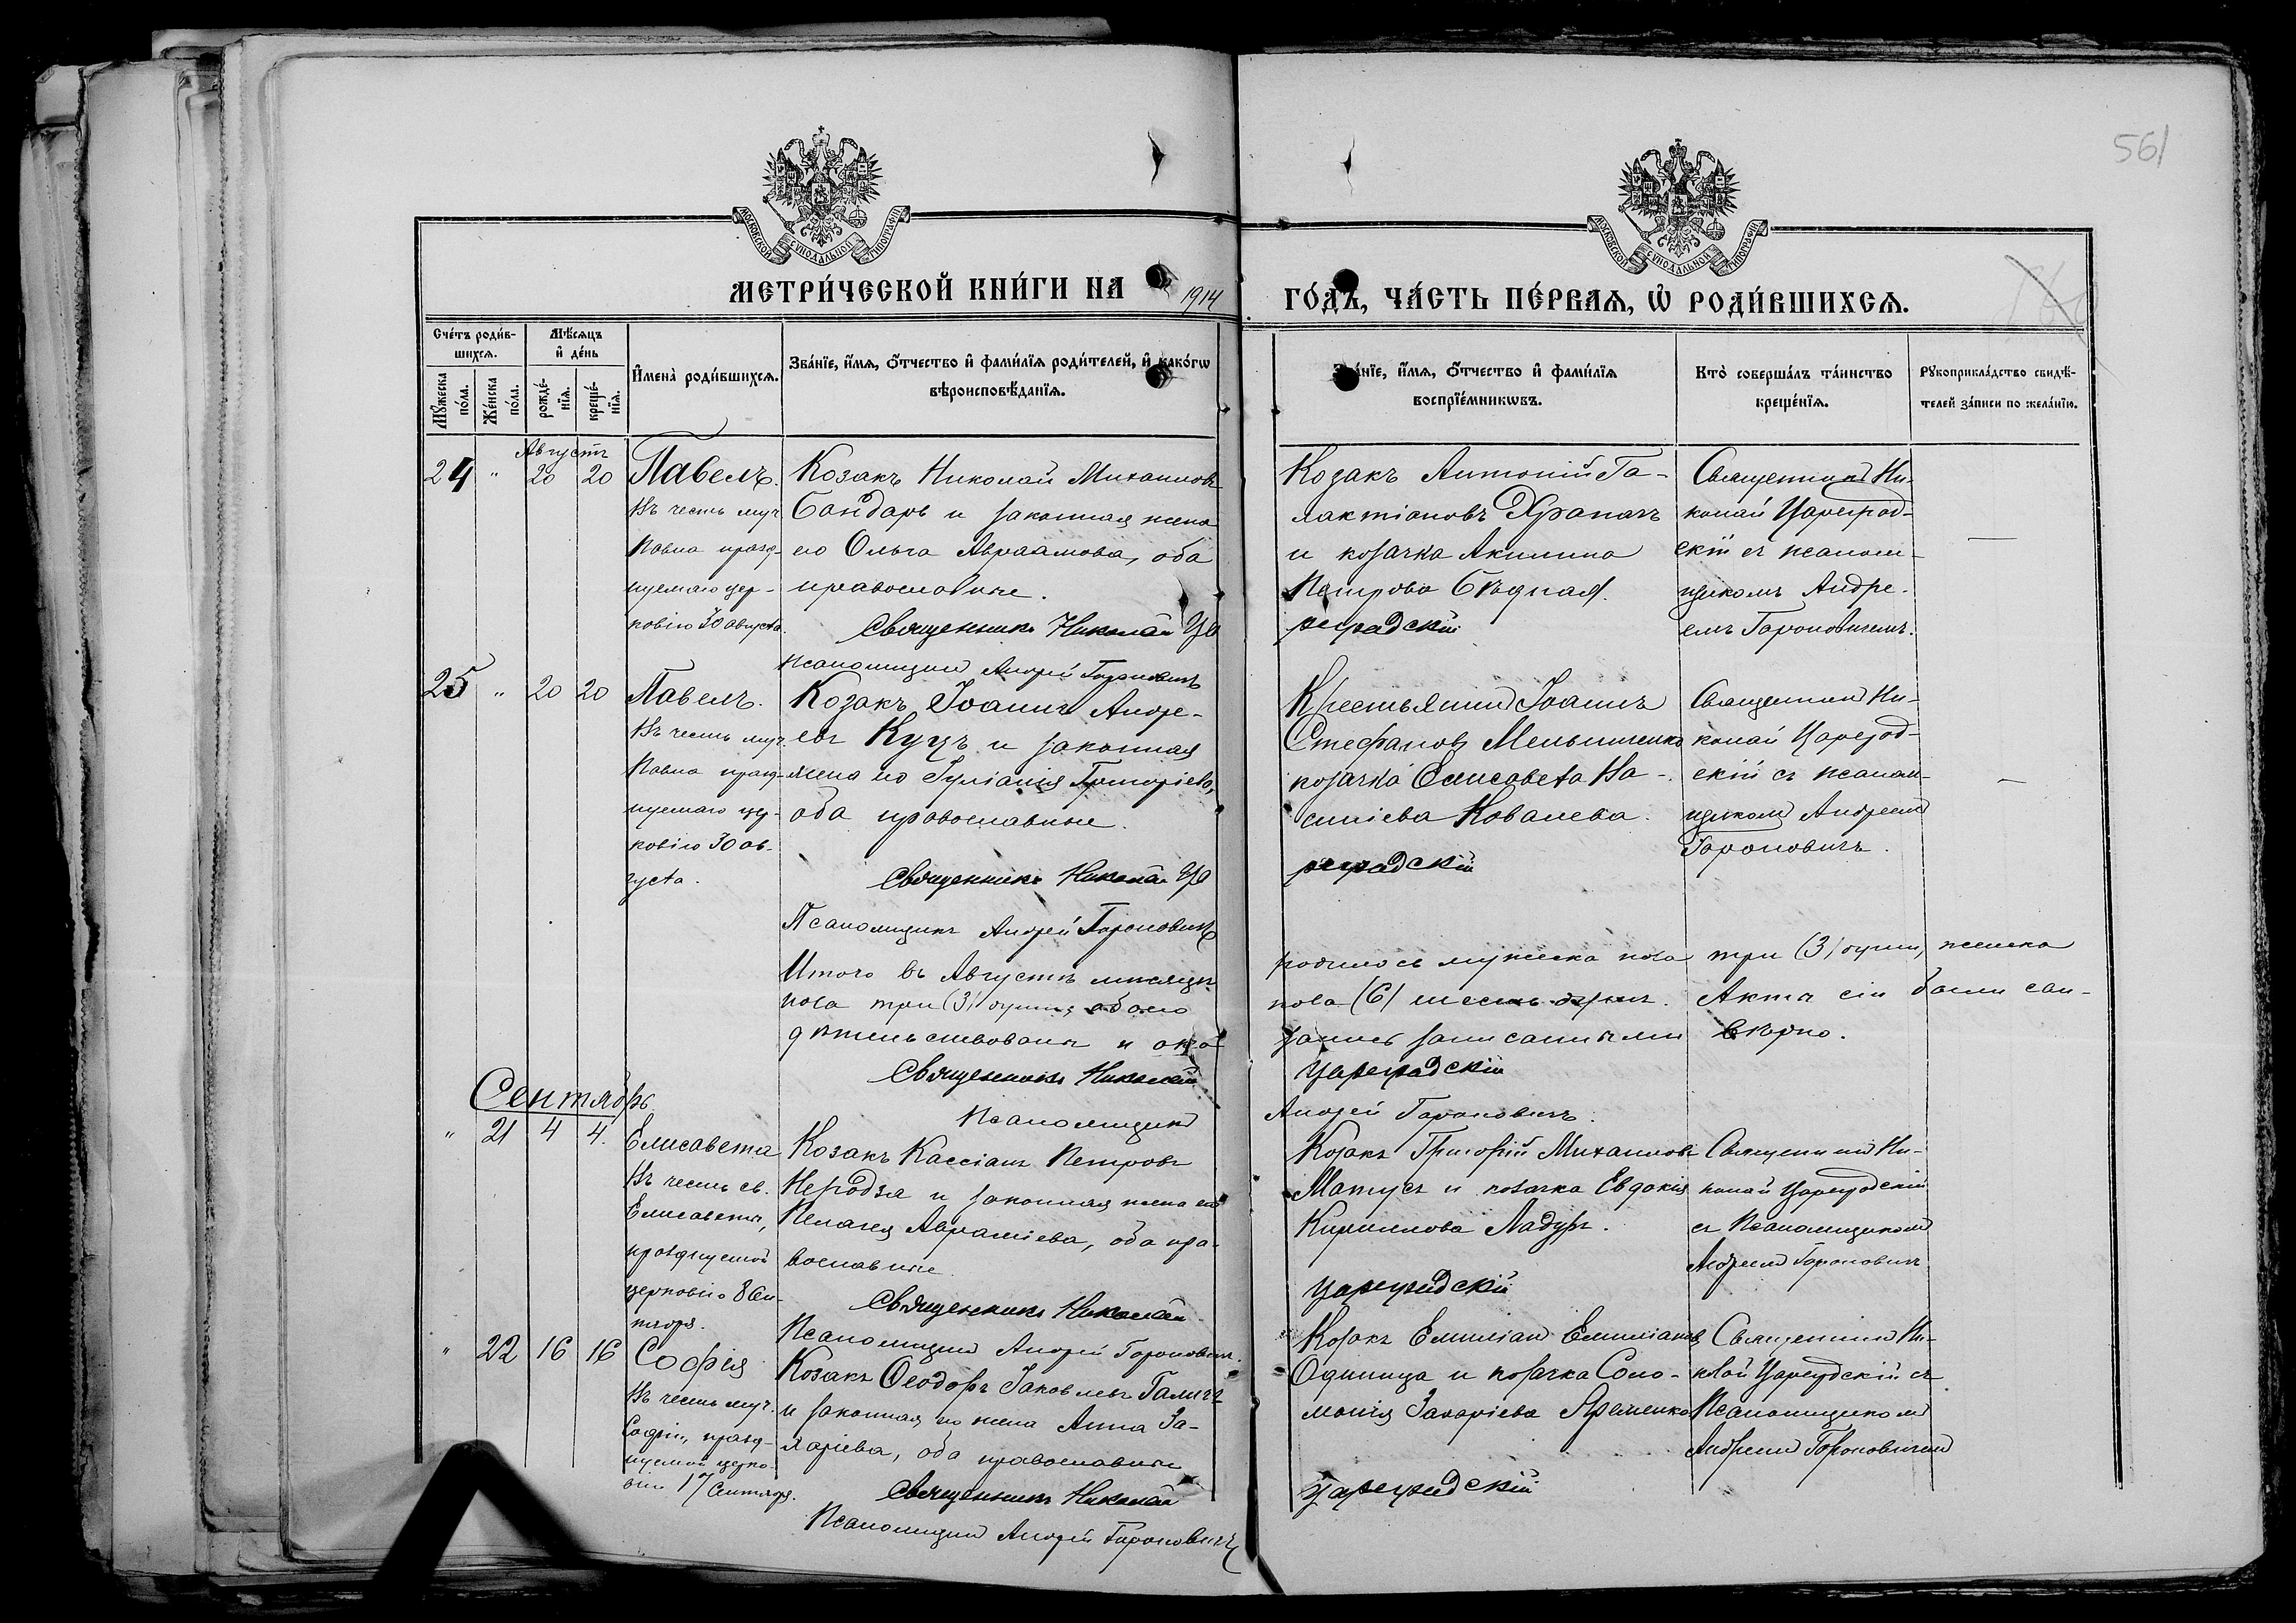 561
МОСКОВСКОЙ СѴНОДАЛЬНОЙ ТИПОГРАФІИ
МОСКОВСКОЙ СѴНОДАЛЬНОЙ ТИПОГРАФІИ
МЕТРИ́ЧЕСКОЙ КНИ́ГИ НА 1914 ГО́ДЪ, ЧА́СТЬ ПЕ́РВАѦ, Ѡ҆ РОДИ́ВШИХСѦ.
Сче́тъ роди́в-
шихсѧ.
Мꙋ́жеска по́ла.
Же́нска по́ла.
Мѣ́сѧцъ и҆ де́нь
рожде́-
нїѧ.
креще́-
нїѧ.
И҆мена̀ роди́вшихсѧ.
Зва́нїе, и҆́мѧ, ѻ҆́тчество и҆ фами́лїѧ роди́телей, и҆ како́гѡ
вѣроисповѣ́данїѧ.
Зва́нїе, и҆́мѧ, ѻ҆́тчество и҆ фами́лїѧ
воспрїе́мникѡвъ.
Кто̀ соверша́лъ та́инство
креще́нїѧ.
Рꙋкоприкла́дство свидѣ́-
телей за́писи по жела́нїю.
Августъ
24 " 20 20
Павелъ.
Въ честь муч.
Павла празд-
нуемаго цер-
ковію 30 августа.
Козакъ Николай Михаиловъ
Бондарь и законная жена
его Ольга Авраамова, оба
православные.
Священникъ Николай Ца
реградскій
Псаломщикъ Андрей Гороновичъ
Козакъ Антоній Га-
лактіоновъ Храпачъ
и козачка Акилина
Петрова Бѣдная.
Священникъ Ни-
колай Цареград-
скій съ псалом-
щикомъ Андре-
емъ Гороновичемъ.
—
25 " 20 20
Павелъ.
Въ честь муч.
Павла празд-
нуемаго цер-
ковію 30 ав-
густа.
Козакъ Іоаннъ Андре-
евъ Куцъ и законная
жена его Іуліанія Григоріева,
оба православные.
Священникъ Николай Ца
реградскій
Псаломщикъ Андрей Гороновичъ
Крестьянинъ Іоаннъ
Стефановъ Мельниченко
козачка Елисавета Ва-
силіева Ковалева.
Священникъ Ни-
колай Цареград-
скій съ псалом-
щикомъ Андреемъ
Гороновичъ.
—
Итого въ Августѣ мѣсяцѣ родилось мужеска пола три (3) души, женска
пола три (3) души, обоего пола (6) шесть душъ. Акты сіи были сви-
дѣтельствованы и оказались записанными вѣрно.
Священникъ Николай Цареградскій
Псаломщикъ Андрей Гороновичъ.
Сентябрь
" 21 4 4.
Елисавета
Въ честь св.
Елисаветы,
празднуемой
церковію 8 Сен-
тября.
Козакъ Кассіанъ Петровъ
Неродзя и законная жена его
Пелагея Авраміева, оба пра-
вославные.
Священникъ Николай Цареградскій
Псаломщикъ Андрей Гороновичъ.
Козакъ Григорій Михаиловъ
Матусъ и козачка Евдокія
Кириллова Ладуръ.
Священникъ Ни-
колай Цареградскій
съ Псаломщикомъ
Андреемъ Гороновичъ
" 22 16 16
Софія
Въ честь муч.
Софіи, празд-
нуемой церко-
вію 17 Сентября.
Козакъ Ѳеодоръ Іаковлевъ Галичъ
и законная его жена Анна За-
харіева, оба православные
Священникъ Николай Цареградскій
Псаломщикъ Андрей Гороновичъ
Козакъ Емиліанъ Емиліановъ
Одиница и козачка Соло-
монія Захаріева Яременко
Священникъ Ни-
колай Цареградскій съ
Псаломщикомъ
Андреемъ Гороновичемъ